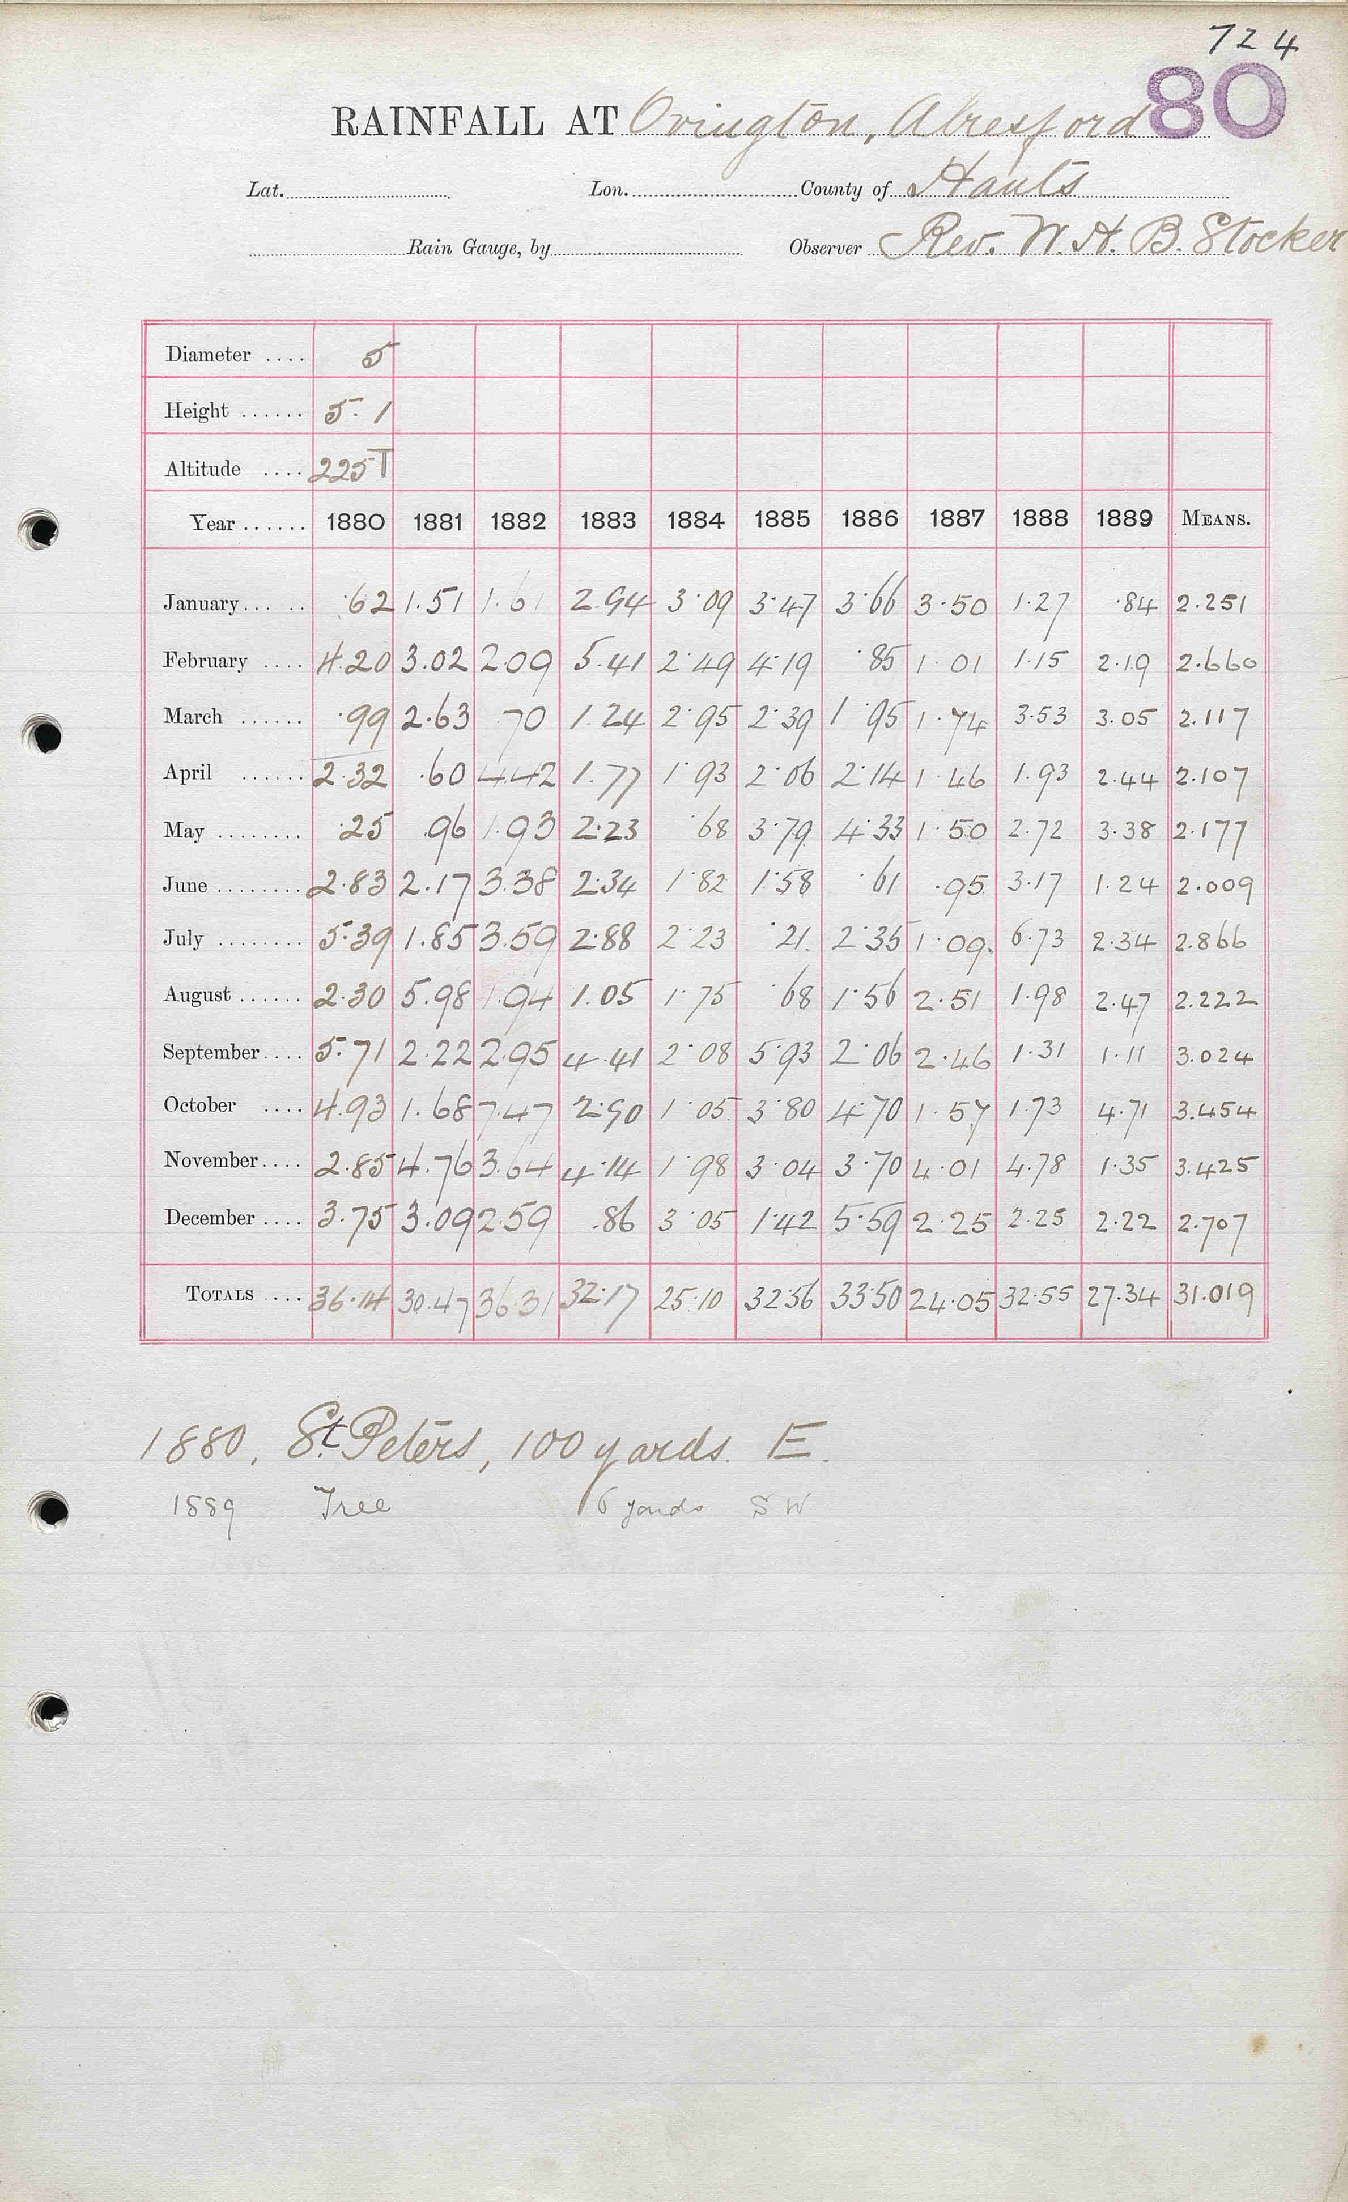 724
80
RAINFALL AT Ovington, Alresford
Lat. Lon. County of Hants
Rain Gauge, by Observer Rev. W. H. B. Stocker
Diameter .... 5
Height ...... 5·1
Altitude .... 225 T
Year ...... 1880 1881 1882 1883 1884 1885 1886 1887 1888 1889 MEANS.
January ... .. ·62 1.51 1.61 2.94 3·09 3·47 3·66 3·50 1·27 ·84 2.251
February .... 4.20 3.02 2.09 5.41 2·49 4·19 ·85 1·01 1·15 2.19 2.660
March ...... ·99 2.63 70 1.24 2·95 2·39 1·95 1·74 3.53 3.05 2.117
April ...... 2.32 .60 4.42 1.77 1·93 2·06 2·14 1·46 1.93 2.44 2.107
May ........ ·25 .96 1.93 2.23 ·68 3·79 4·33 1·50 2.72 3.38 2.177
June ........ 2.83 2.17 3.38 2.34 1·82 1·58 ·61 ·95 3.17 1.24 2.009
July ........ 5.39 1.85 3.59 2.88 2·23 ·21 2·35 1·09 6.73 2.34 2.866
August ...... 2.30 5.98 1.94 1.05 1·75 ·68 1·56 2·51 1.98 2.47 2.222
September .... 5.71 2.22 2.95 4.41 2·08 5·93 2·06 2·46 1.31 1.11 3.024
October .... 4.93 1.68 7.47 2.90 1·05 3·80 4·70 1·57 1.73 4.71 3.454
November .... 2.85 4.76 3.64 4.14 1·98 3·04 3·70 4·01 4.78 1.35 3.425
December .... 3.75 3.09 2.59 .86 3·05 1·42 5·59 2·25 2.25 2.22 2.707
TOTALS .... 36.14 30.47 36.31 32.17 25.10 32.56 33.50 24.05 32.55 27.34 31.019
1880, St. Peters, 100 yards E.
1889 Tree 16 yards SW